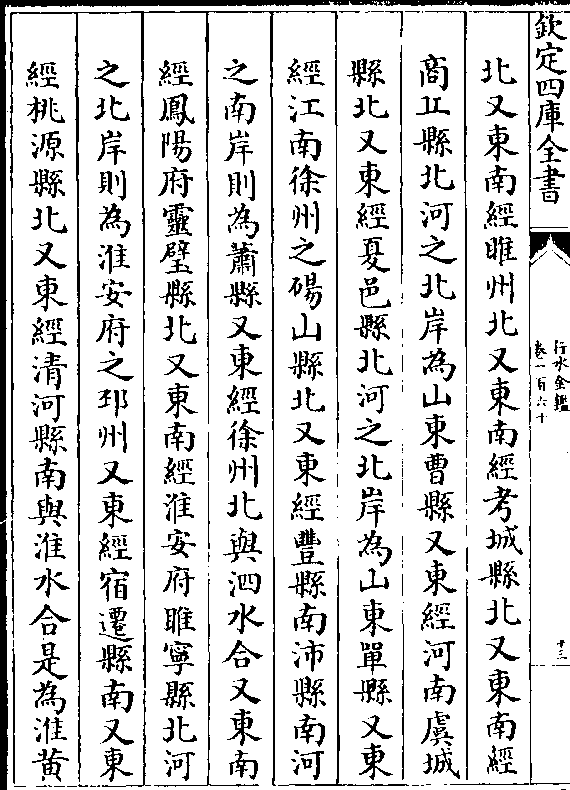 欽定四庫全書
行水金鑑
卷一百六十
十三
北又東南經睢州北又東南經考城縣北又東南經
商丘縣北河之北岸為山東曹縣又東經河南虞城
縣北又東經夏邑縣北河之北岸為山東單縣又東
經江南徐州之碭山縣北又東經豐縣南沛縣南河
之南岸則為蕭縣又東經徐州北與泗水合又東南
經鳳陽府靈璧縣北又東南經淮安府睢寧縣北河
之北岸則為淮安府之邳州又東經宿遷縣南又東
經桃源縣北又東經清河縣南與淮水合是為淮黄